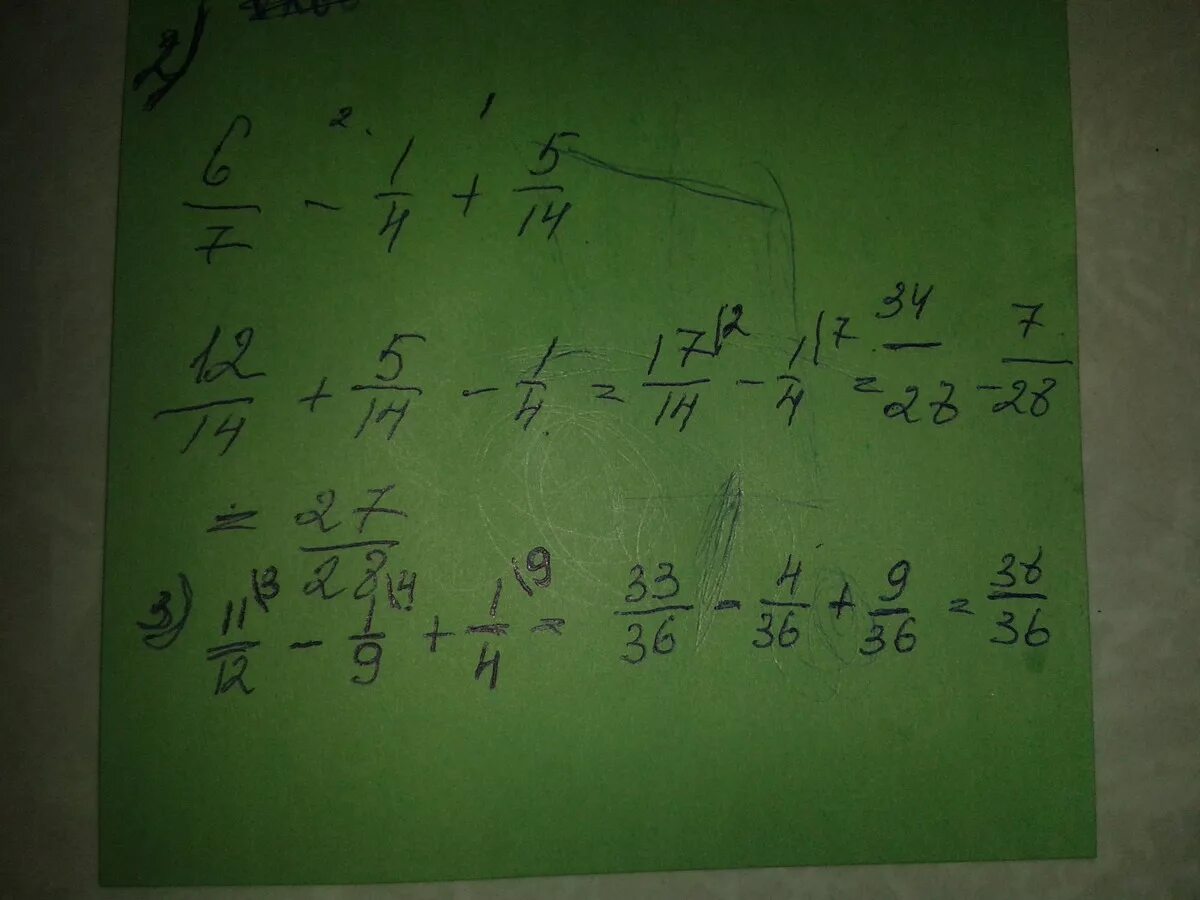 2)
6/7 - 1/4 + 5/14
2. 1
12/14 + 5/14 - 1/4 = 17/14 \2 - 1/4 \7 = 34/28 - 7/28
= 27/28
3) 11/12 \3 - 1/9 \4 + 1/4 \9 = 33/36 - 4/36 + 9/36 = 38/36